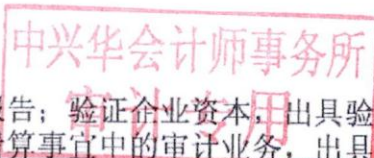 中兴华会计师事务所
审计专用
告；验证企业资本，出具验
算事宜中的审计业务，出具